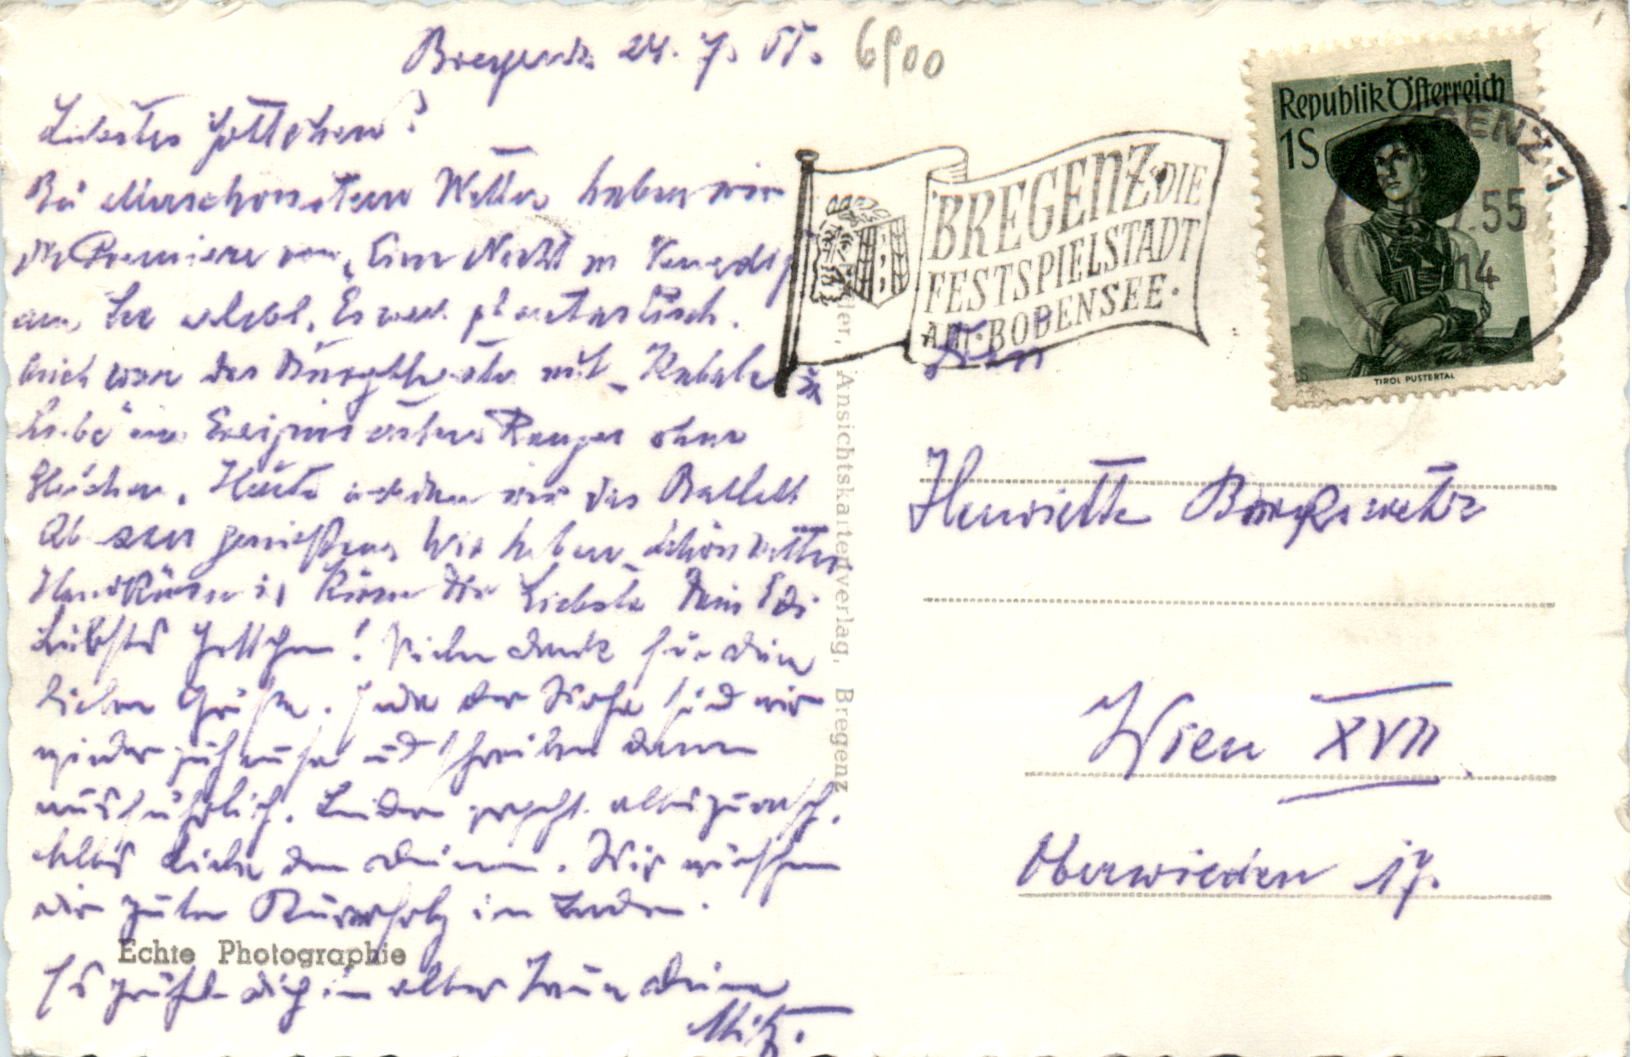 Bregenz 24. 7. 55. 6900
Liebstes Jettchen!
Bei allerschönstem Wetter haben wir
die Premiere von „Eine Nacht in Venedig
am See erlebt. Es war phantastisch.
Auch war das Burgtheater mit „Kabale u
Liebe" ein Ereignis ersten Ranges ohne
Gleichen. Heute werden wir das Ballett
Ab genießen. Wir haben Schönwetter
Handküsse u. Küsse Dir Liebste Dein Edi
Liebstes Jettchen! Vielen Dank für deine
lieben Grüße. Ende der Woche sind wir
wieder zuhause und schreiben dann
ausführlich. Leider geht alles zu rasch.
Alles Liebe den Deinen. Wir wünschen
dir guten Kurerfolg in Baden.
Echte Photographie
Es grüßt dich in alter Treue deine
Mitzi.
der, Ansichtskartenverlag, Bregenz
BREGENZ·DIE
FESTSPIELSTADT
AM·BODENSEE·
Republik Österreich
1S
TIROL PUSTERTAL
GENZ 1
55
14
Henriette
Wien XVII.
Oberwieden 17.